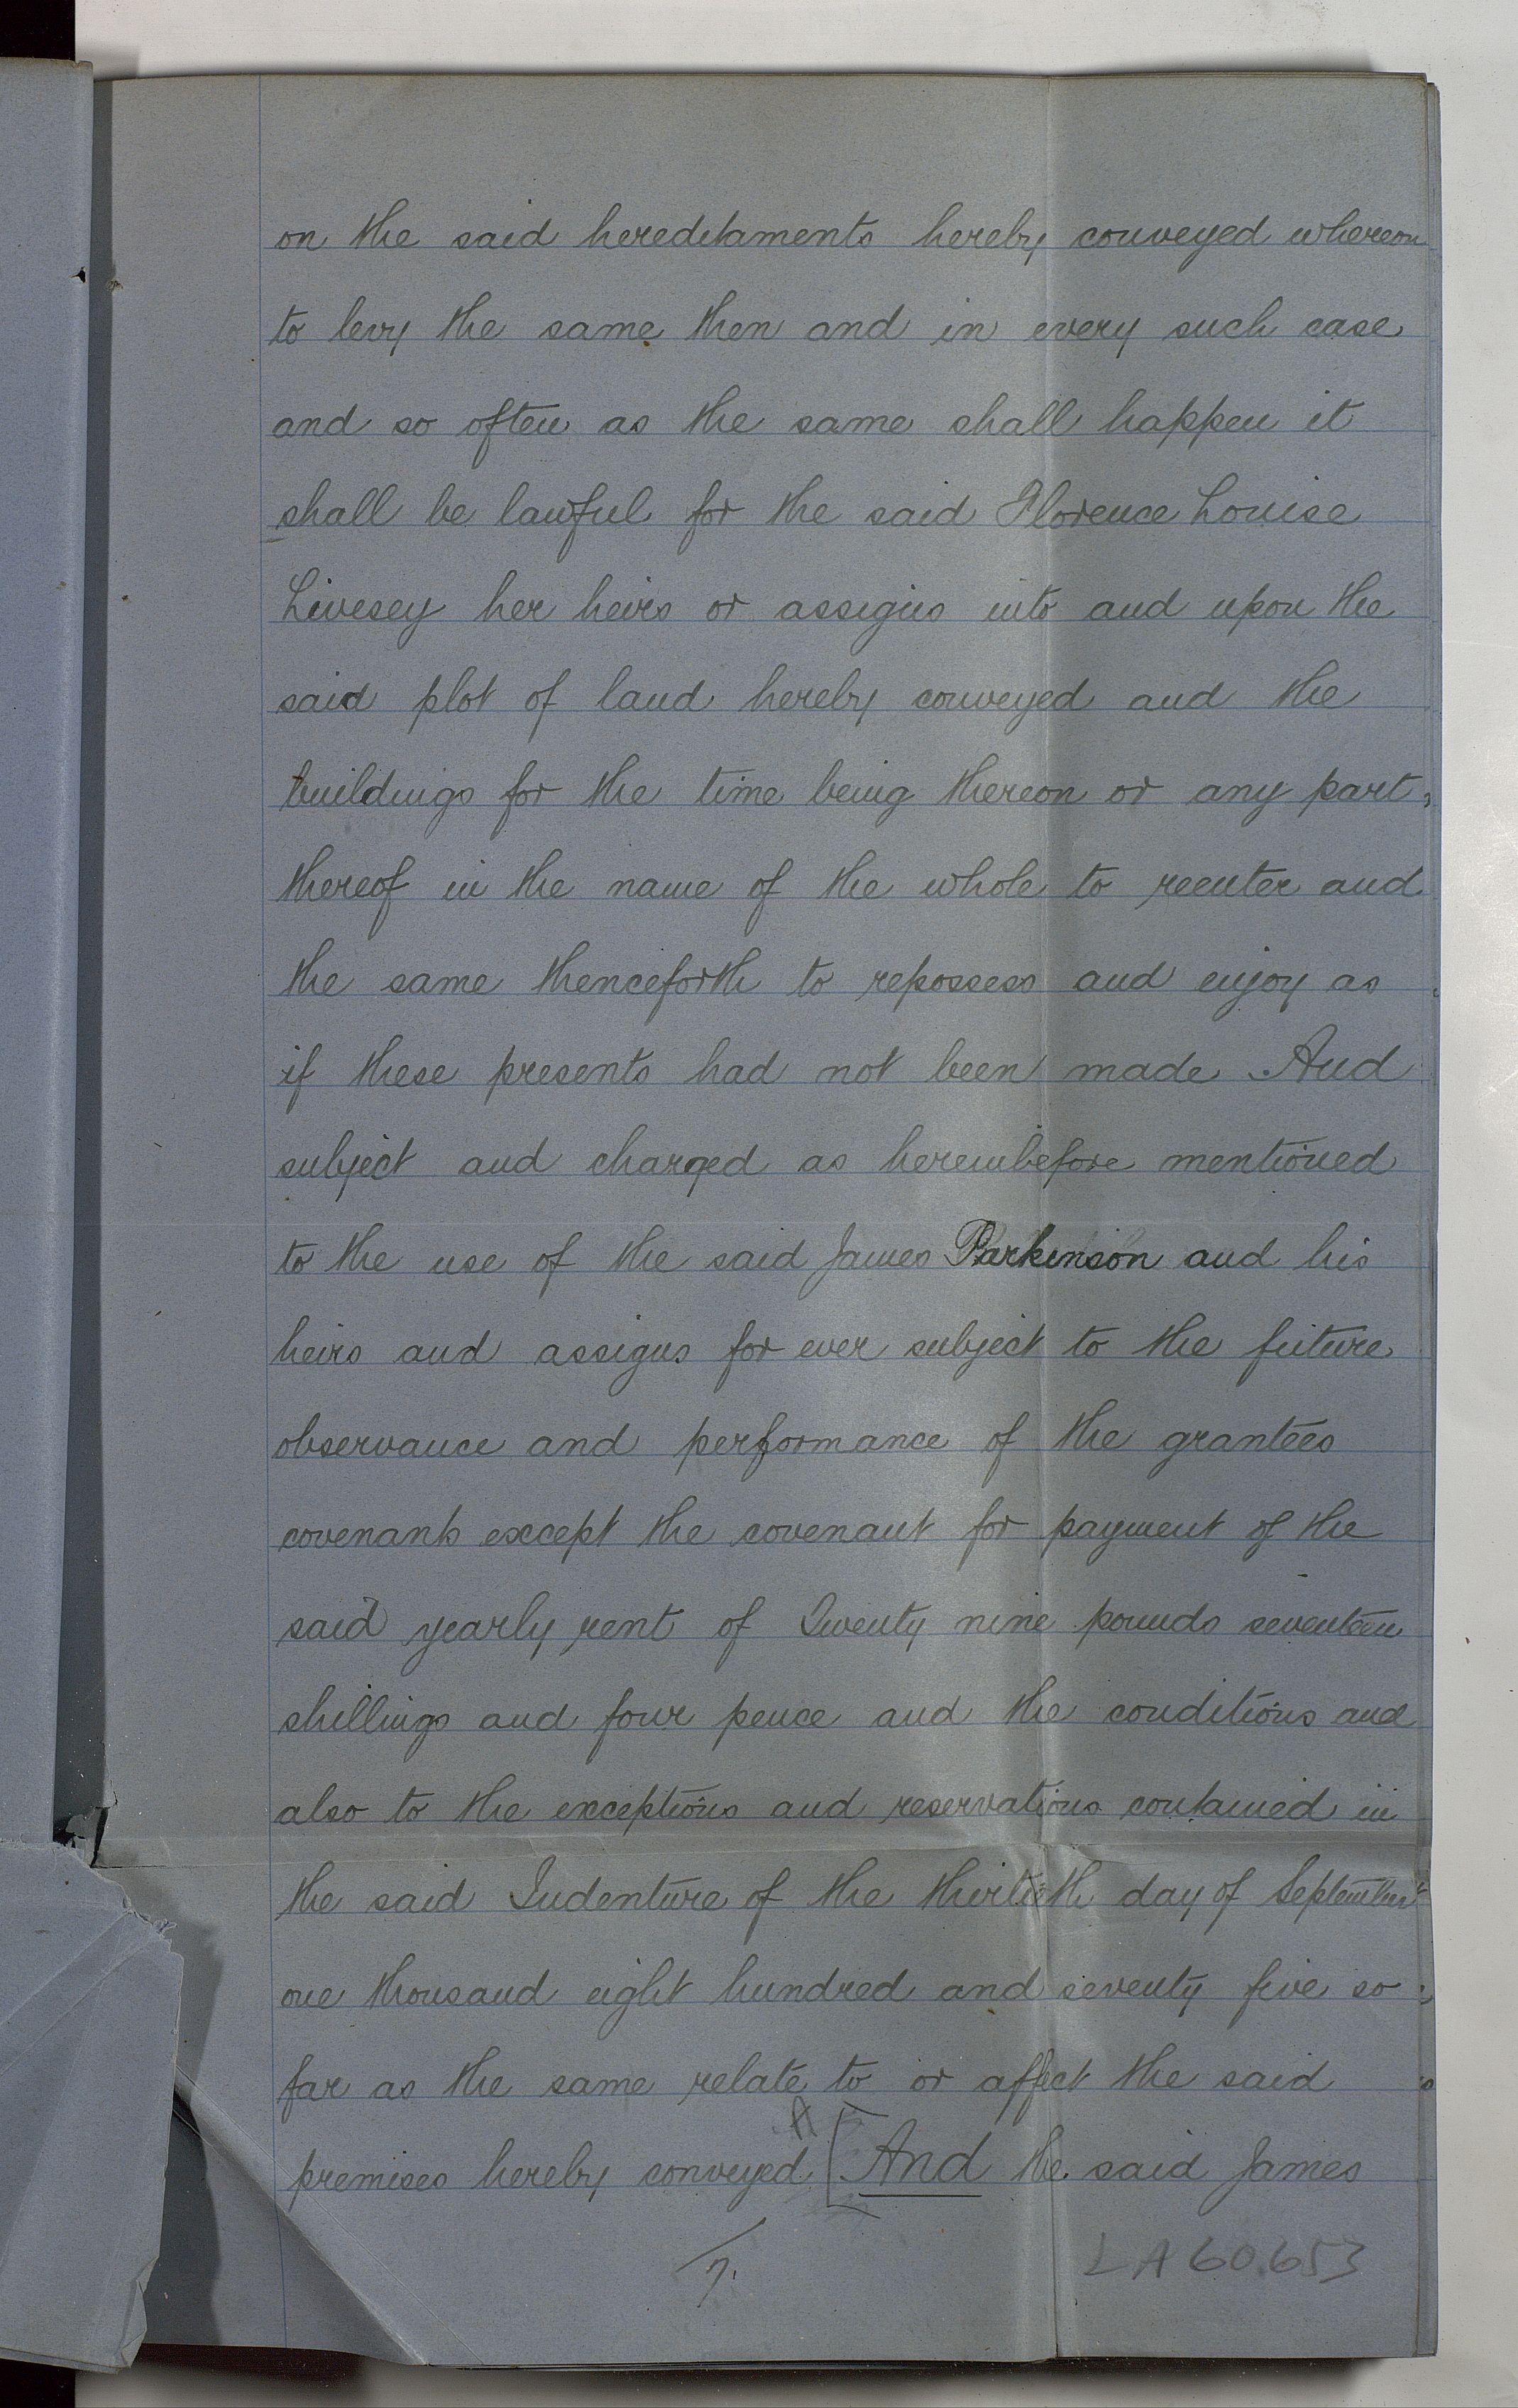 on the said hereditaments hereby conveyed whereon
to levy the same then and in every such case
and so often as the same shall happen it
shall be lawful for the said Florence Louise
Livesey her heirs or assigns into and upon the
said plot of land hereby conveyed and the
buildings for the time being thereon or any part
thereof in the name of the whole to reenter and
the same thenceforth to repossess and enjoy as
if these presents had not been made And
subject and charged as hereinbefore mentioned
to the use of the said James Parkinson and his
heirs and assigns for ever subject to the future
observance and performance of the grantees
covenants except the covenant for payment of the
said yearly rent of Twenty nine pounds seventeen
shillings and four pence and the conditions and
also to the exceptions and reservations contained in
the said Indenture of the thirtieth day of September
one thousand eight hundred and seventy five so
far as the same relate to or affect the said
A
premises hereby conveyed [And the said James
7.
LA60.653